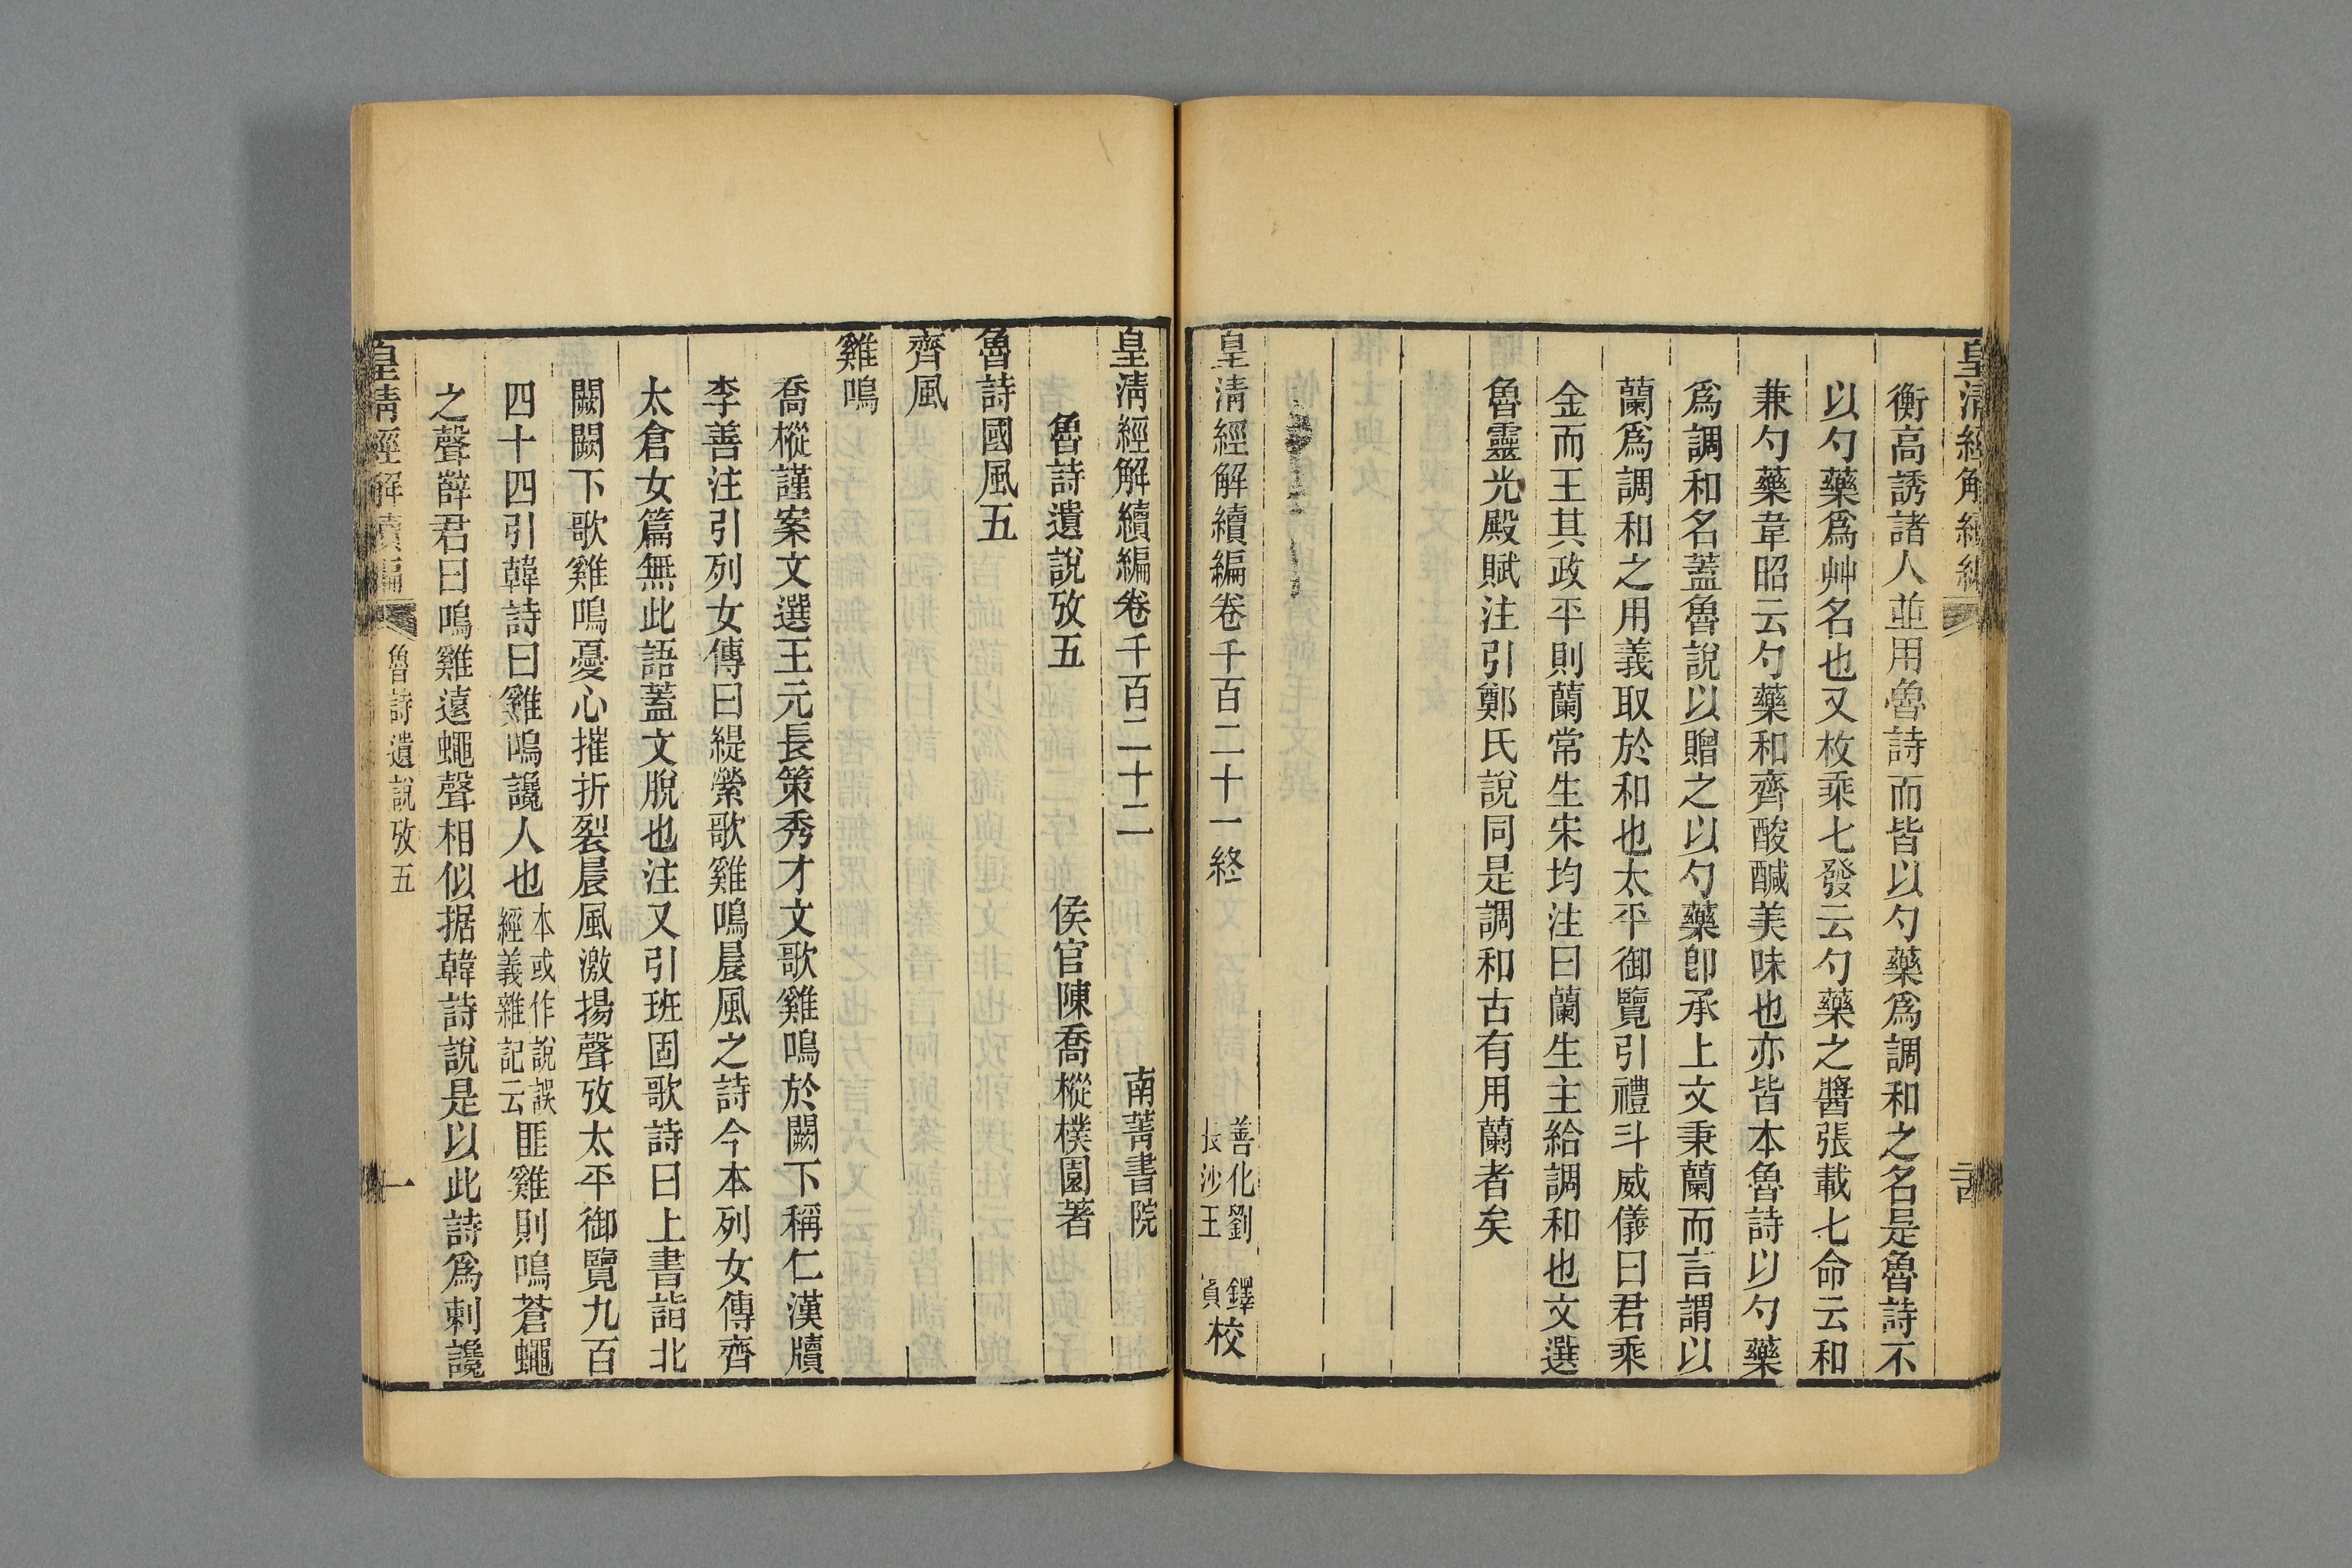 皇清經解續編
衡高誘諸人並用魯詩而皆以勺藥爲調和之名是魯詩不
以勺藥爲艸名也又枚乘七發云勺藥之醬張載七命云和
兼勺藥韋昭云勺藥和齊酸鹹美味也亦皆本魯詩以勺藥
爲調和名蓋魯說以贈之以勺藥卽承上文秉蘭而言謂以
蘭爲調和之用義取於和也太平御覽引禮斗威儀曰君乘
金而王其政平則蘭常生宋均注曰蘭生主給調和也文選
魯靈光殿賦注引鄭氏說同是調和古有用蘭者矣
皇清經解續編卷千百二十一終
善化劉 鐸
長沙王 眞校
皇清經解續編卷千百二十二 南菁書院
魯詩遺說攷五 侯官陳喬樅樸園著
魯詩國風五
齊風
雞鳴
喬樅謹案文選王元長策秀才文歌雞鳴於闕下稱仁漢牘
李善注引列女傳曰緹縈歌雞鳴晨風之詩今本列女傳齊
太倉女篇無此語蓋文脫也注又引班固歌詩曰上書詣北
闕闕下歌雞鳴憂心摧折裂晨風激揚聲攷太平御覽九百
四十四引韓詩曰雞鳴讒人也本或作說誤經義雜記云匪雞則鳴蒼蠅
之聲薛君曰鳴雞遠蠅聲相似据韓詩說是以此詩爲刺讒
皇清經解續編 魯詩遺說攷五 一